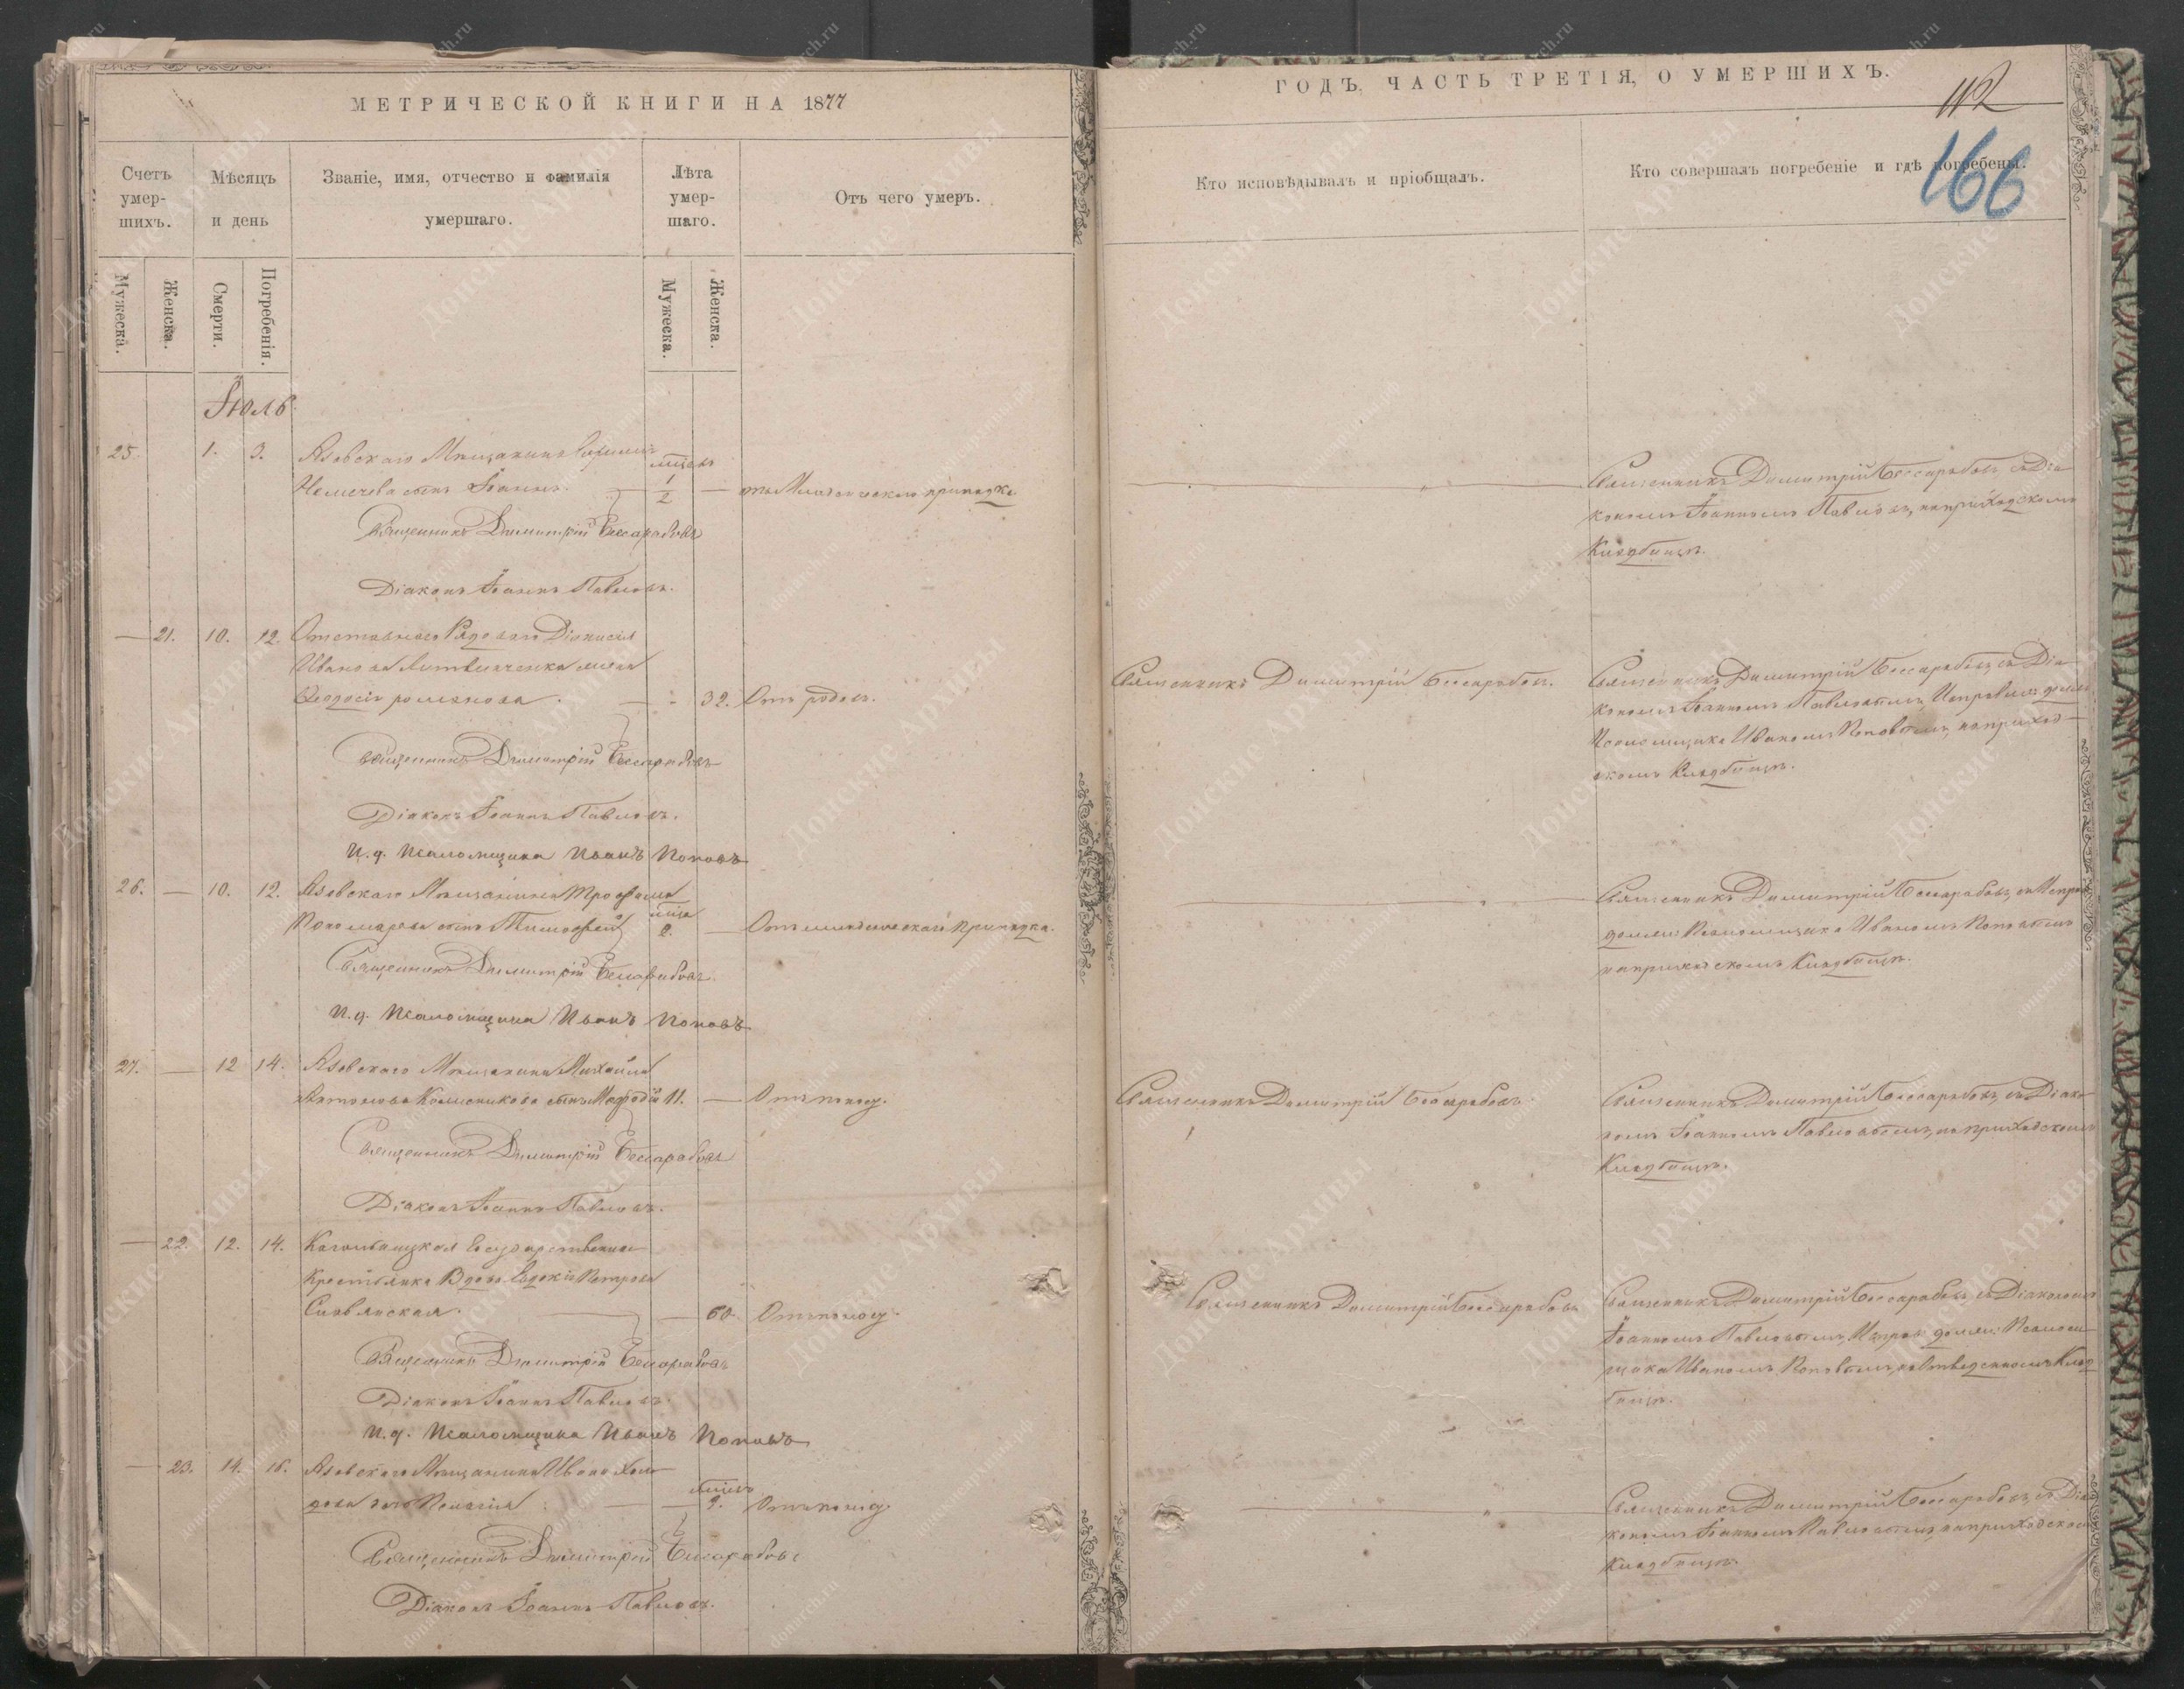 МЕТРИЧЕСКОЙ КНИГИ НА 1877
Счетъ умер-шихъ.
Мѣсяцъ и день
Званіе, имя, отчество и фамилія умершаго.
Лѣта умер-шаго.
Отъ чего умеръ.
Мужеска.
Женска.
Смерти.
Погребенія.
Мужеска.
Женска.
Іюль.
25. 1. 3. Азовскаго Мѣщанина
сынъ Іоаннъ. 1/2 — отъ Младенческаго припадка
Священникъ Димитрій Бессарабовъ
Діаконъ Іоаннъ Павловъ.
— 21. 10. 12. Отставнаго Рядоваго Діонисія
Иванова Литвинченка жена
Ѳеодосія романова. — 32. Отъ родовъ.
Священникъ Димитрій Бессарабовъ
Діаконъ Іоаннъ Павловъ.
И. д. Псаломщика Иванъ Поповъ
26. — 10. 12. Азовскаго Мѣщанина Трофима
Пономарева сынъ Тимофей 2. — Отъ младенческаго припадка.
Священникъ Димитрій Бессарабовъ.
И. д. Псаломщика Иванъ Поповъ
27. — 12 14. Азовскаго Мѣщанина Михаила
Антонова Колесникова сынъ Мефодій 11. — Отъ поносу.
Священникъ Димитрій Бессарабовъ
Діаконъ Іоаннъ Павловъ.
— 22. 12. 14. Кагальницкая Государственная
Крестьянка Вдова Евдокія Петрова
Славянская. — 60. Отъ поносу.
Священникъ Димитрій Бессарабовъ
Діаконъ Іоаннъ Павловъ.
И. д. Псаломщика Иванъ Поповъ
— 23. 14. 16. Азовскаго Мѣщанина Ивана
дочь Пелагія — 9. Отъ поносу.
Священникъ Димитрій Бессарабовъ
Діаконъ Іоаннъ Павловъ.
ГОДЪ, ЧАСТЬ ТРЕТІЯ, О УМЕРШИХЪ.
112
166
Кто исповѣдывалъ и пріобщалъ.
Кто совершалъ погребеніе и гдѣ погребены.
Священникъ Димитрій Бессарабовъ, съ Діа-
кономъ Іоанномъ Павловымъ, на приходскомъ
Кладбищѣ.
Священникъ Димитрій Бессарабовъ.
Священникъ Димитрій Бессарабовъ, съ Діа-
кономъ Іоанномъ Павловымъ, Исправл. долж.
Псаломщика Иваномъ Поповымъ, на приход-
скомъ Кладбищѣ.
Священникъ Димитрій Бессарабовъ, съ Исправ.
долж. Псаломщика Иваномъ Поповымъ
на приходскомъ Кладбищѣ.
Священникъ Димитрій Бессарабовъ.
Священникъ Димитрій Бессарабовъ, съ Діако-
номъ Іоанномъ Павловымъ, на приходскомъ
Кладбищѣ.
Священникъ Димитрій Бессарабовъ
Священникъ Димитрій Бессарабовъ съ Діакономъ
Іоанномъ Павловымъ, Исправ. долж. Псаломщика
Иваномъ Поповымъ, на отведенномъ Клад-
бищѣ.
Священникъ Димитрій Бессарабовъ, съ Діа-
кономъ Іоанномъ Павловымъ, на приходскомъ
Кладбищѣ.